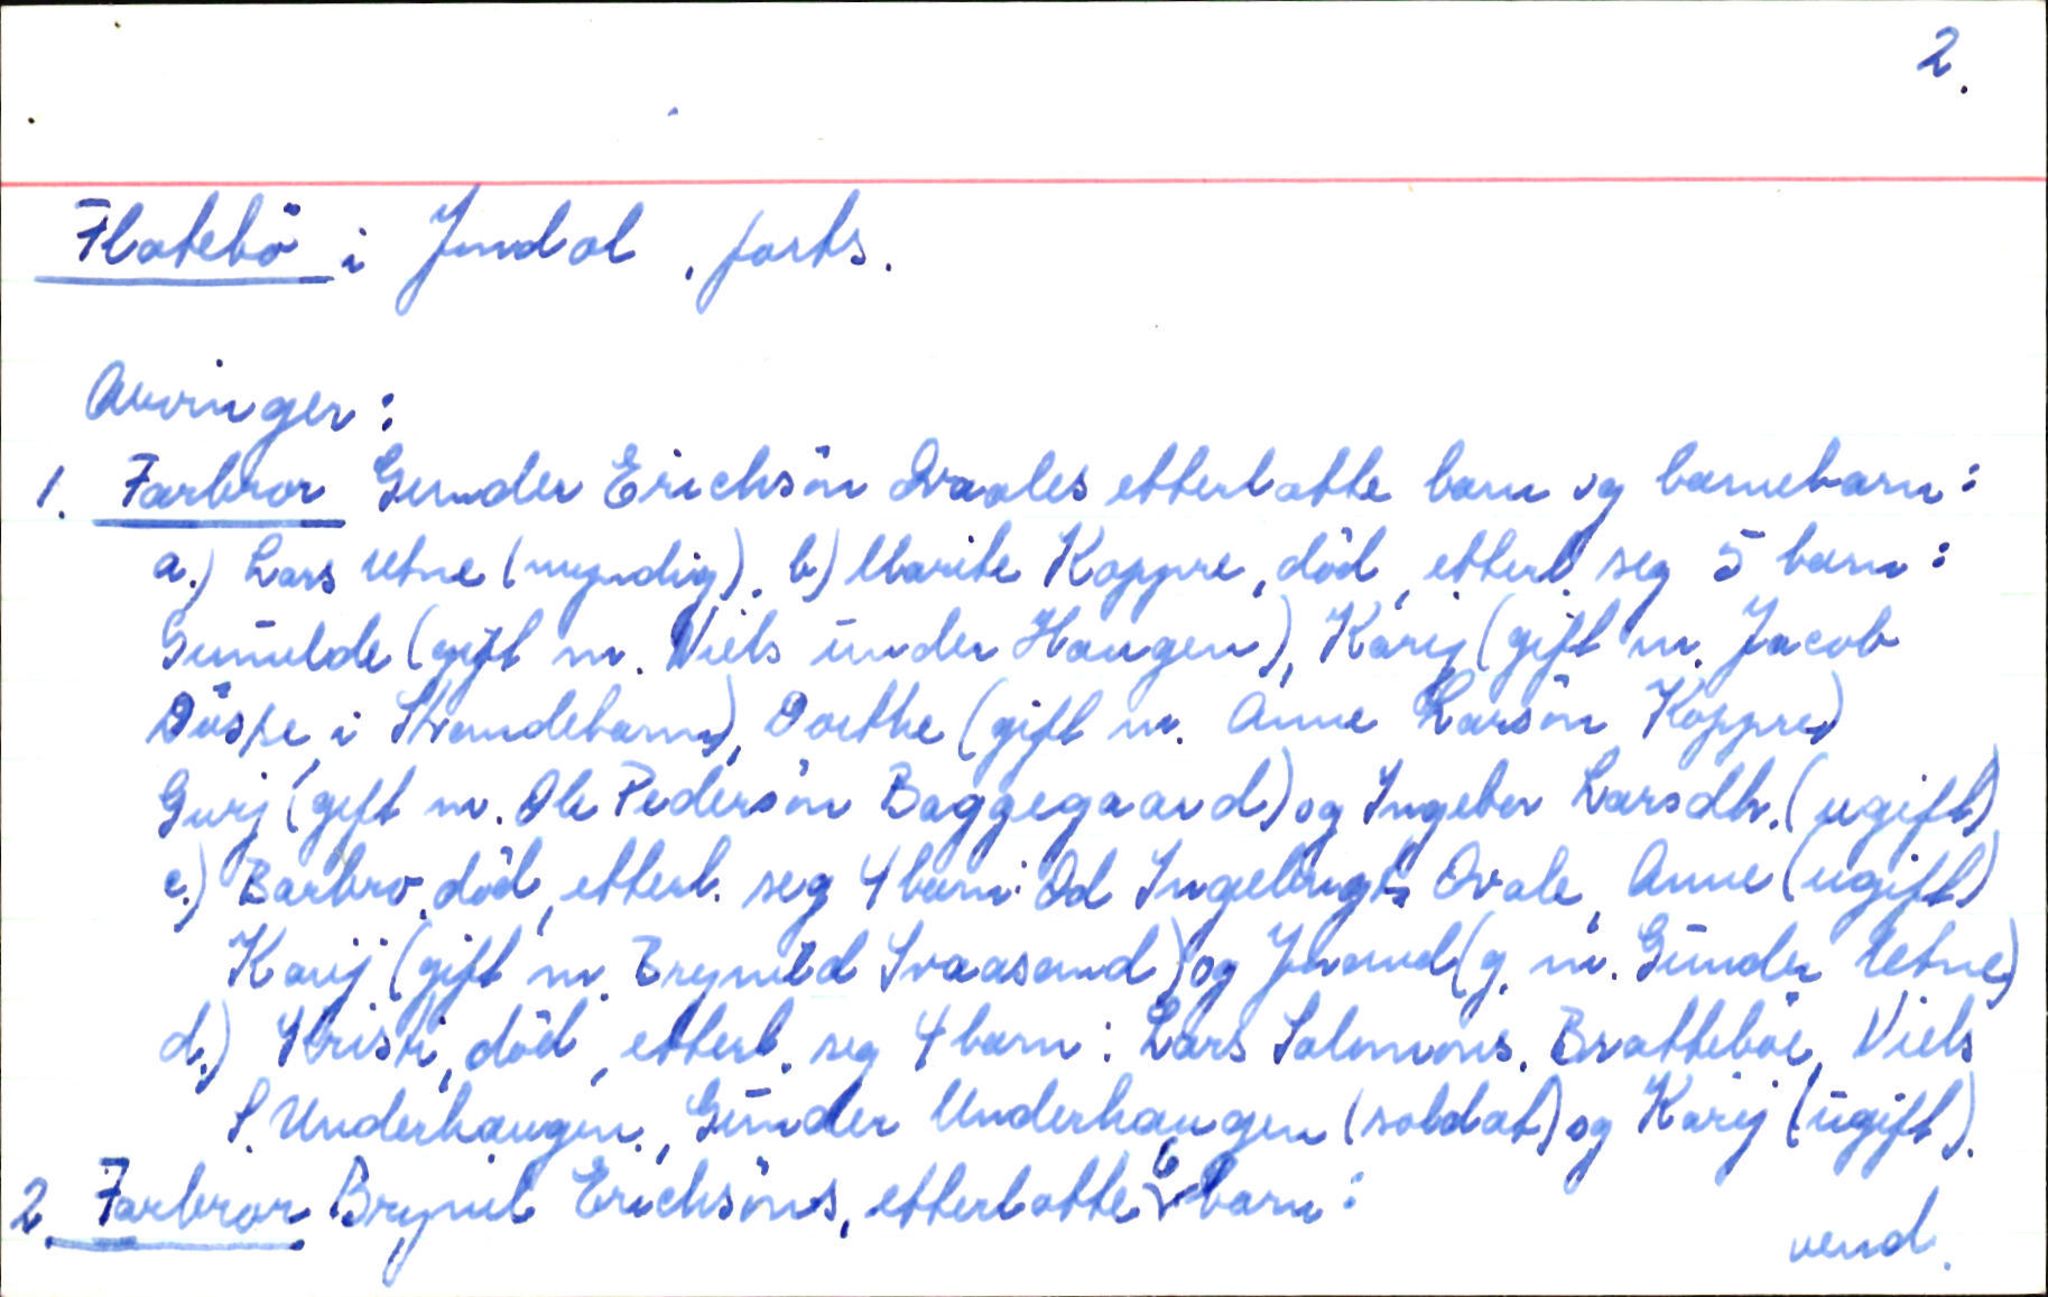 2.
Flatebö i Jondal, forts.
Arvinger:
1. Farbror Gunder Erichsön Qvaales etterlatte barn og barnebarn:
a.) Lars Utne (myndig), b) Marite Koppre, död, etterl. seg 5 barn:
Gunilde (gift m. Niels under Haugen), Karij (gift m. Jacob
Döspe i Strandebarm), Dorthe (gift m. Anne Larsön Koppre)
Gurj (gift m. Ole Pedersön Baggegaard) og Ingebor Larsdtr. (ugift)
c.) Barbro, död, etterl. seg 4 barn: Od Ingebrigts Qvale, Anne (ugift)
Karij (gift m. Brynild Svaasand) og Jorand (g. m. Gunder Utne)
d.) Kristi, död, etterl. seg 4 barn: Lars Salomons. Bratteböe, Niels
S. Underhaugen, Gunder Underhaugen (soldat) og Karij (ugift).
2. Farbror Brynil Erichsöns, etterlatte 6 barn:
vend.